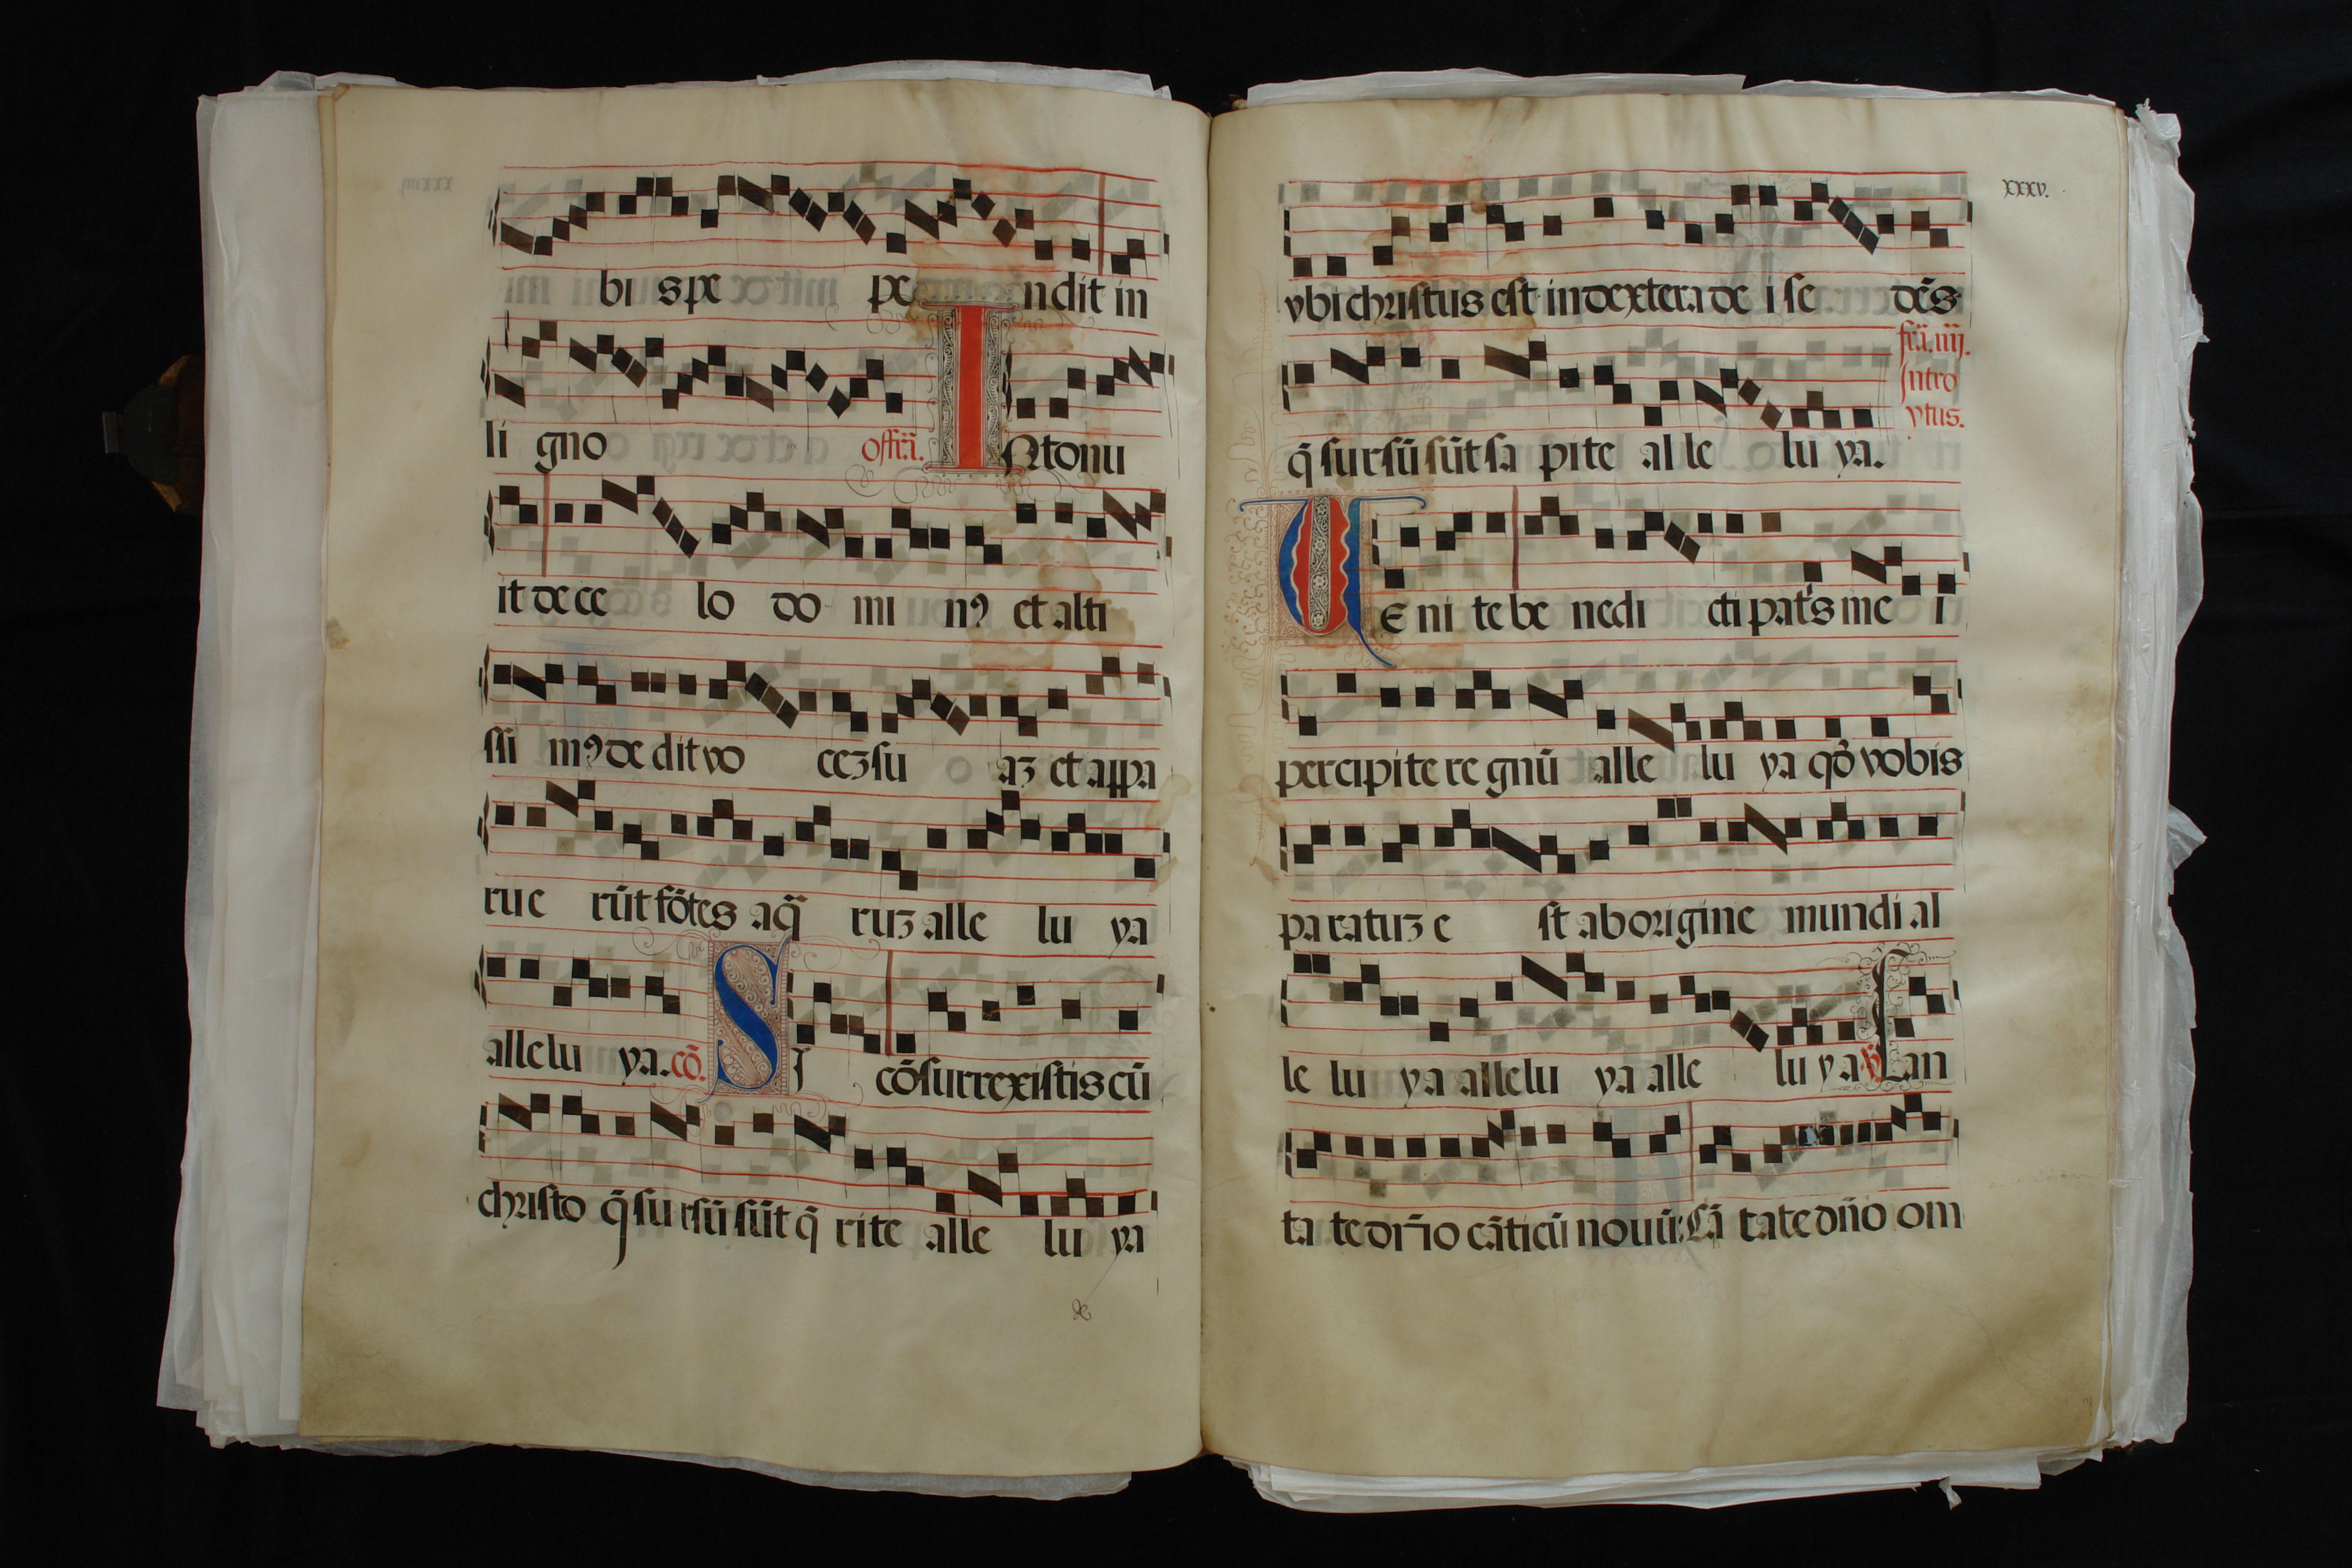 bis pe pe ndit in
li gno offr̃a. INtonu
it de ce lo do mi nꝰ et alti
ssi mꝰ de dit vo ceʒ su aʒ et appa
rue rūt fōtes aq̄ ruʒ alle lu ya
allelu ya. cō. SI cōsurrexistis cū
christo q̄ sursū sūt q̄ rite alle lu ya
xxxv.
vbi christus est in dextera de i se dēs
fr̃a. iiij.
Intro
ytus.
q̄ sursū sūt sa pite al le lu ya.
VE ni te be nedi cti pat̄s me i
percipite re gnū alle lu ya qð vobis
paratuʒ e st ab origine mundi al
le lu ya allelu ya alle lu ya Can
ta te dn̄o cāticū nouū: Cā tate dn̄o om